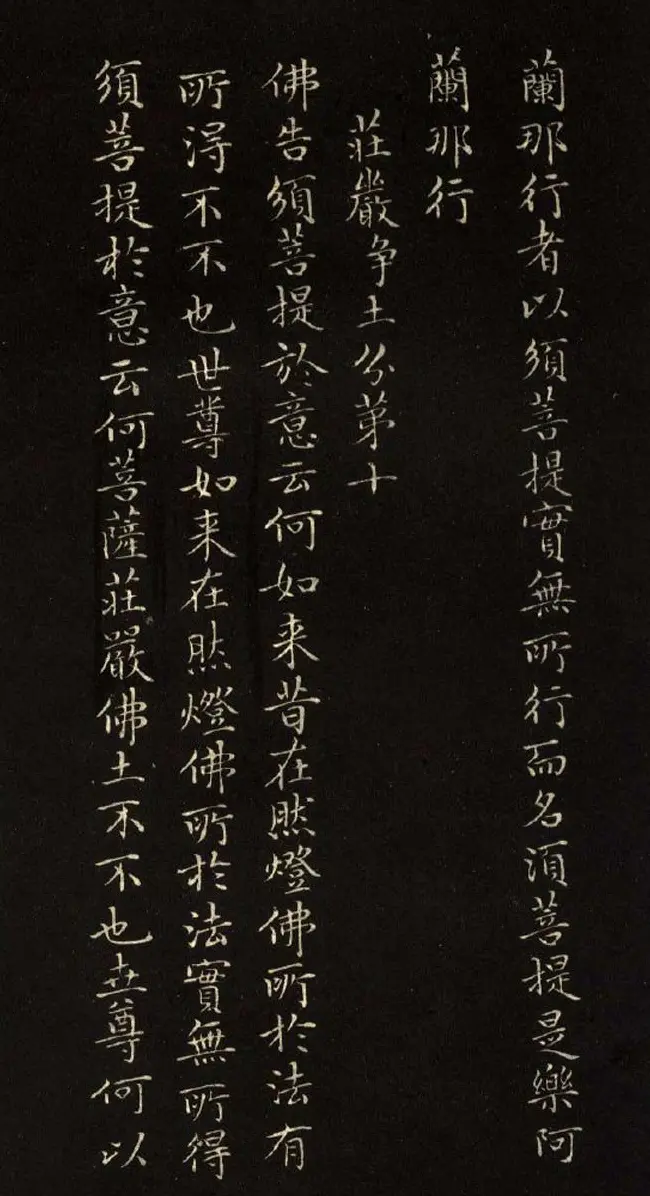 蘭那行者以須菩提實無所行而名須菩提是樂阿
蘭那行
莊嚴争土分第十
佛告須菩提於意云何如来昔在然燈佛所於法有
所得不不也世尊如来在然燈佛所於法實無所得
須菩提於意云何菩薩莊嚴佛土不不也世尊何以